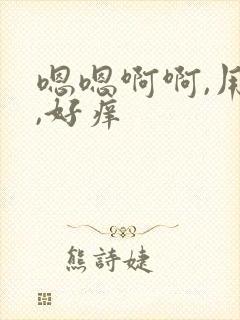 嗯嗯啊啊,用
,好痒
熊詩婕